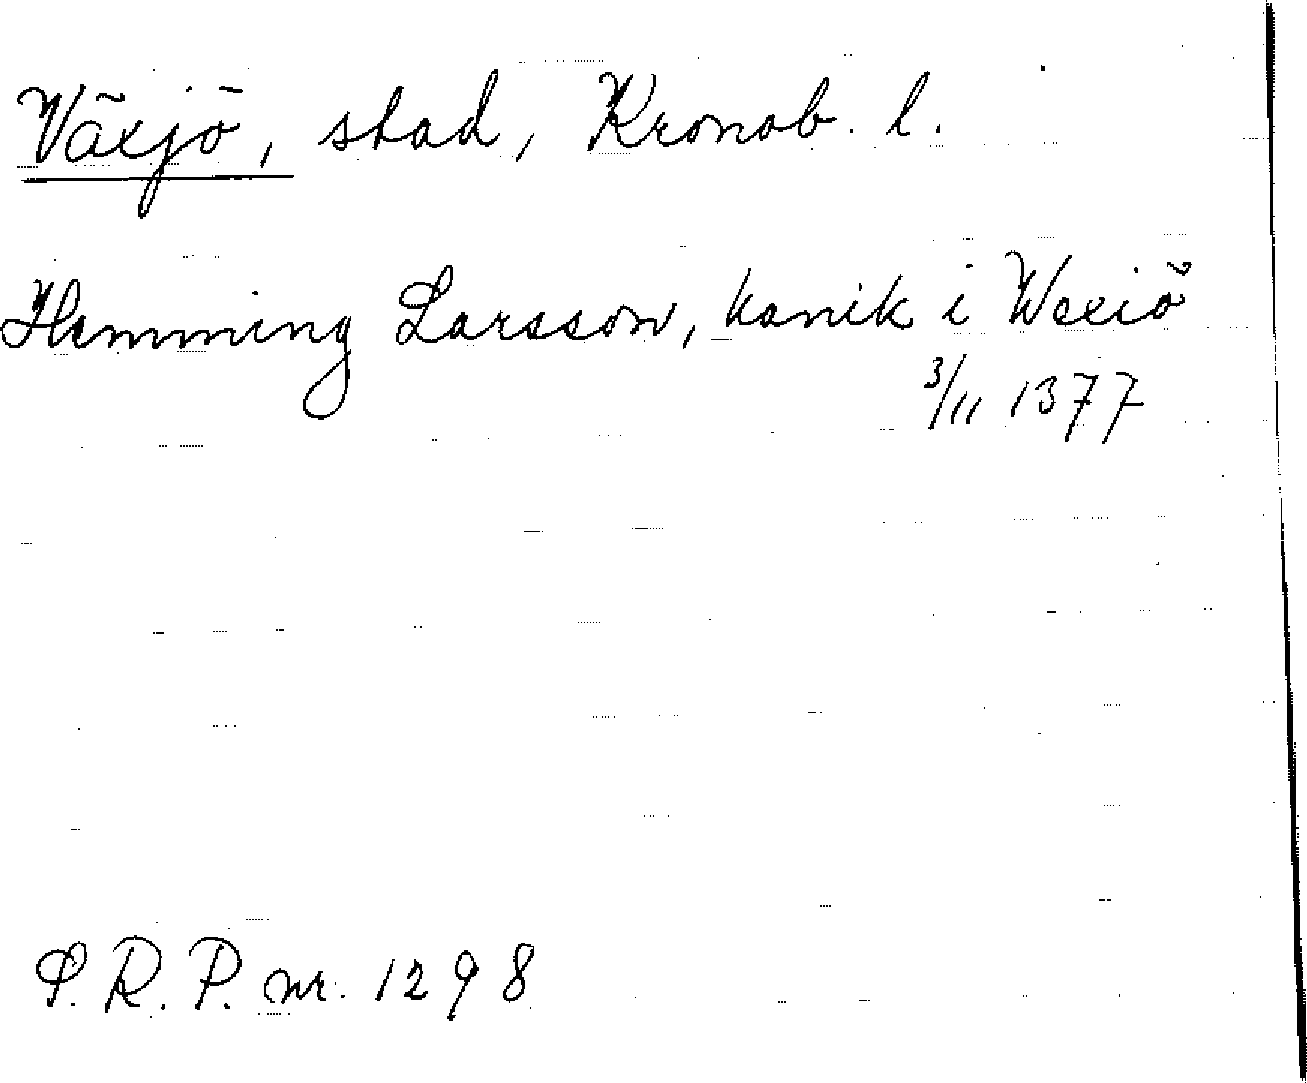 Växjö, stad, Kronob. l.
Hemming Larsson, kanik i Wexiö
3/11 1377
S. R. P. nr. 1298